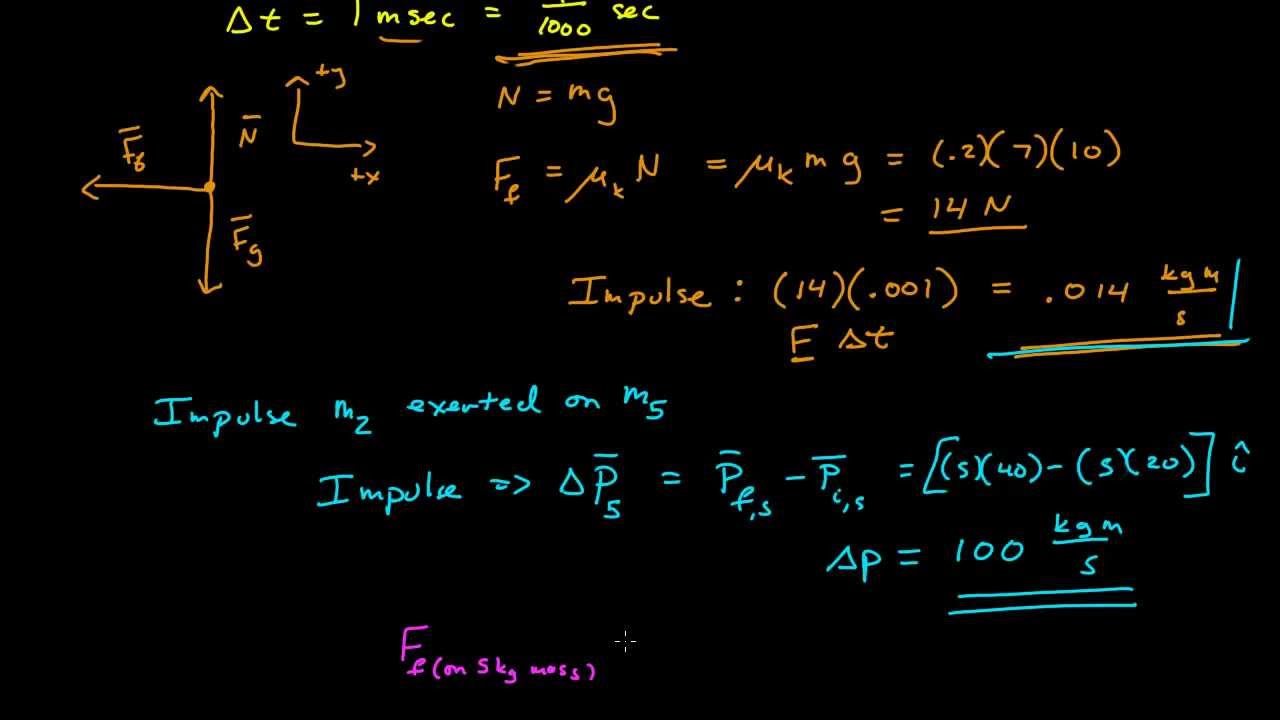 Δt = 1 msec = 1/1000 sec
+y
N̄
F̄f
+x
F̄g
N = mg
Ff = μk N = μk m g = (.2)(7)(10)
= 14 N
Impulse : (14)(.001) = .014 kg m/s
F Δt
Impulse m2 exerted on m5
Impulse => ΔP̄5 = P̄f,5 − P̄i,5 = [(5)(40) − (5)(20)] î
Δp = 100 kg m/s
Ff (on 5 kg mass)